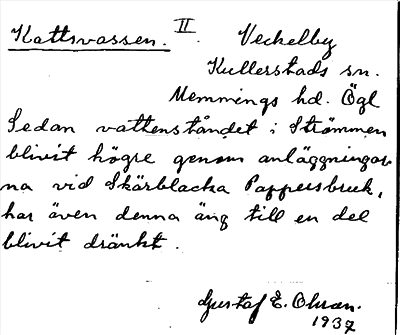 Kattsvassen. II. Veckelby
Kullerstads sn.
Memmings hd. Ögl
Sedan vattenståndet i Strömmen
blivit högre genom anläggningar-
na vid Skärblacka Pappersbruk,
har även denna äng till en del
blivit dränkt.
Gustaf E. Olsson.
1937